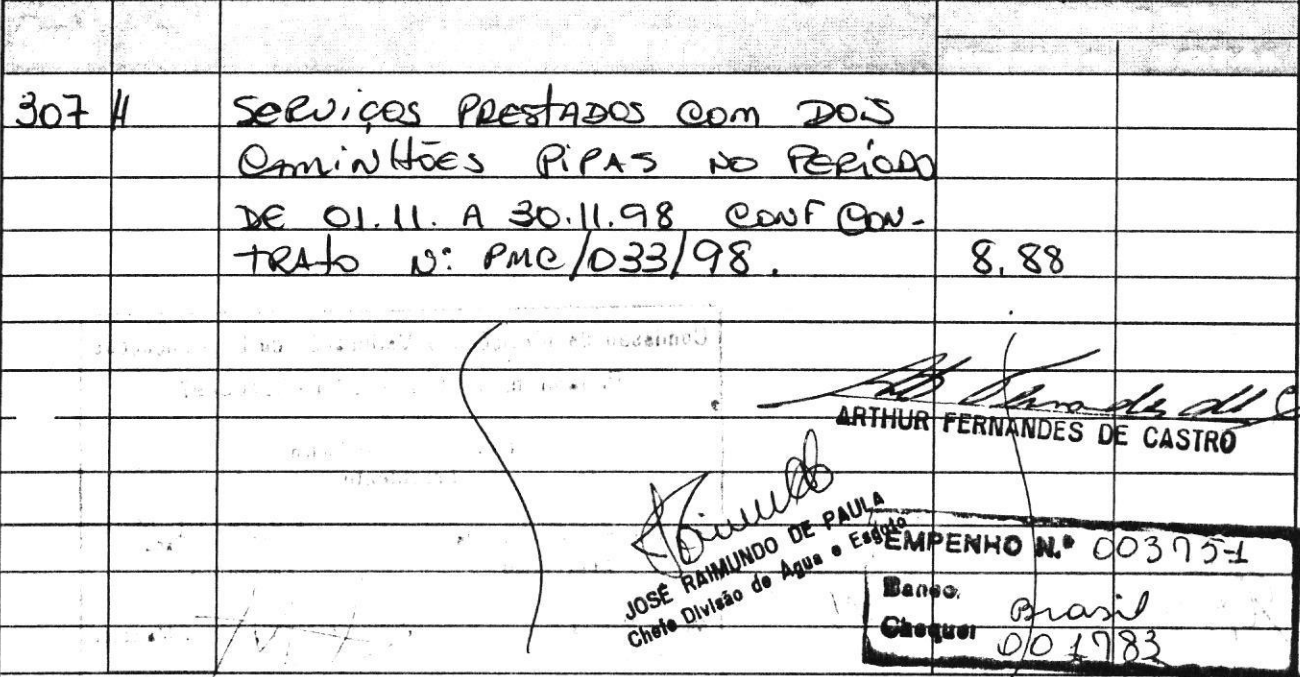 307 H SERVIÇOS PRESTADOS COM DOIS
CAMINHÕES PIPAS NO PERÍODO
DE 01.11. A 30.11.98 CONF CON-
TRATO Nº PMC/033/98. 8,88
ARTHUR FERNANDES DE CASTRO
JOSÉ RAIMUNDO DE PAULA
Chefe Divisão de Agua e Esgoto
EMPENHO N.º 003751
Banco. Brasil
Cheque: 001783